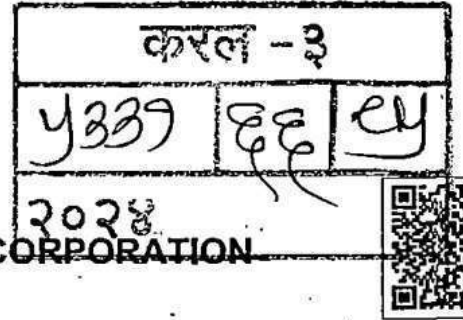 करल -३
५३३१ ६६ ९५
२०२४
CORPORATION